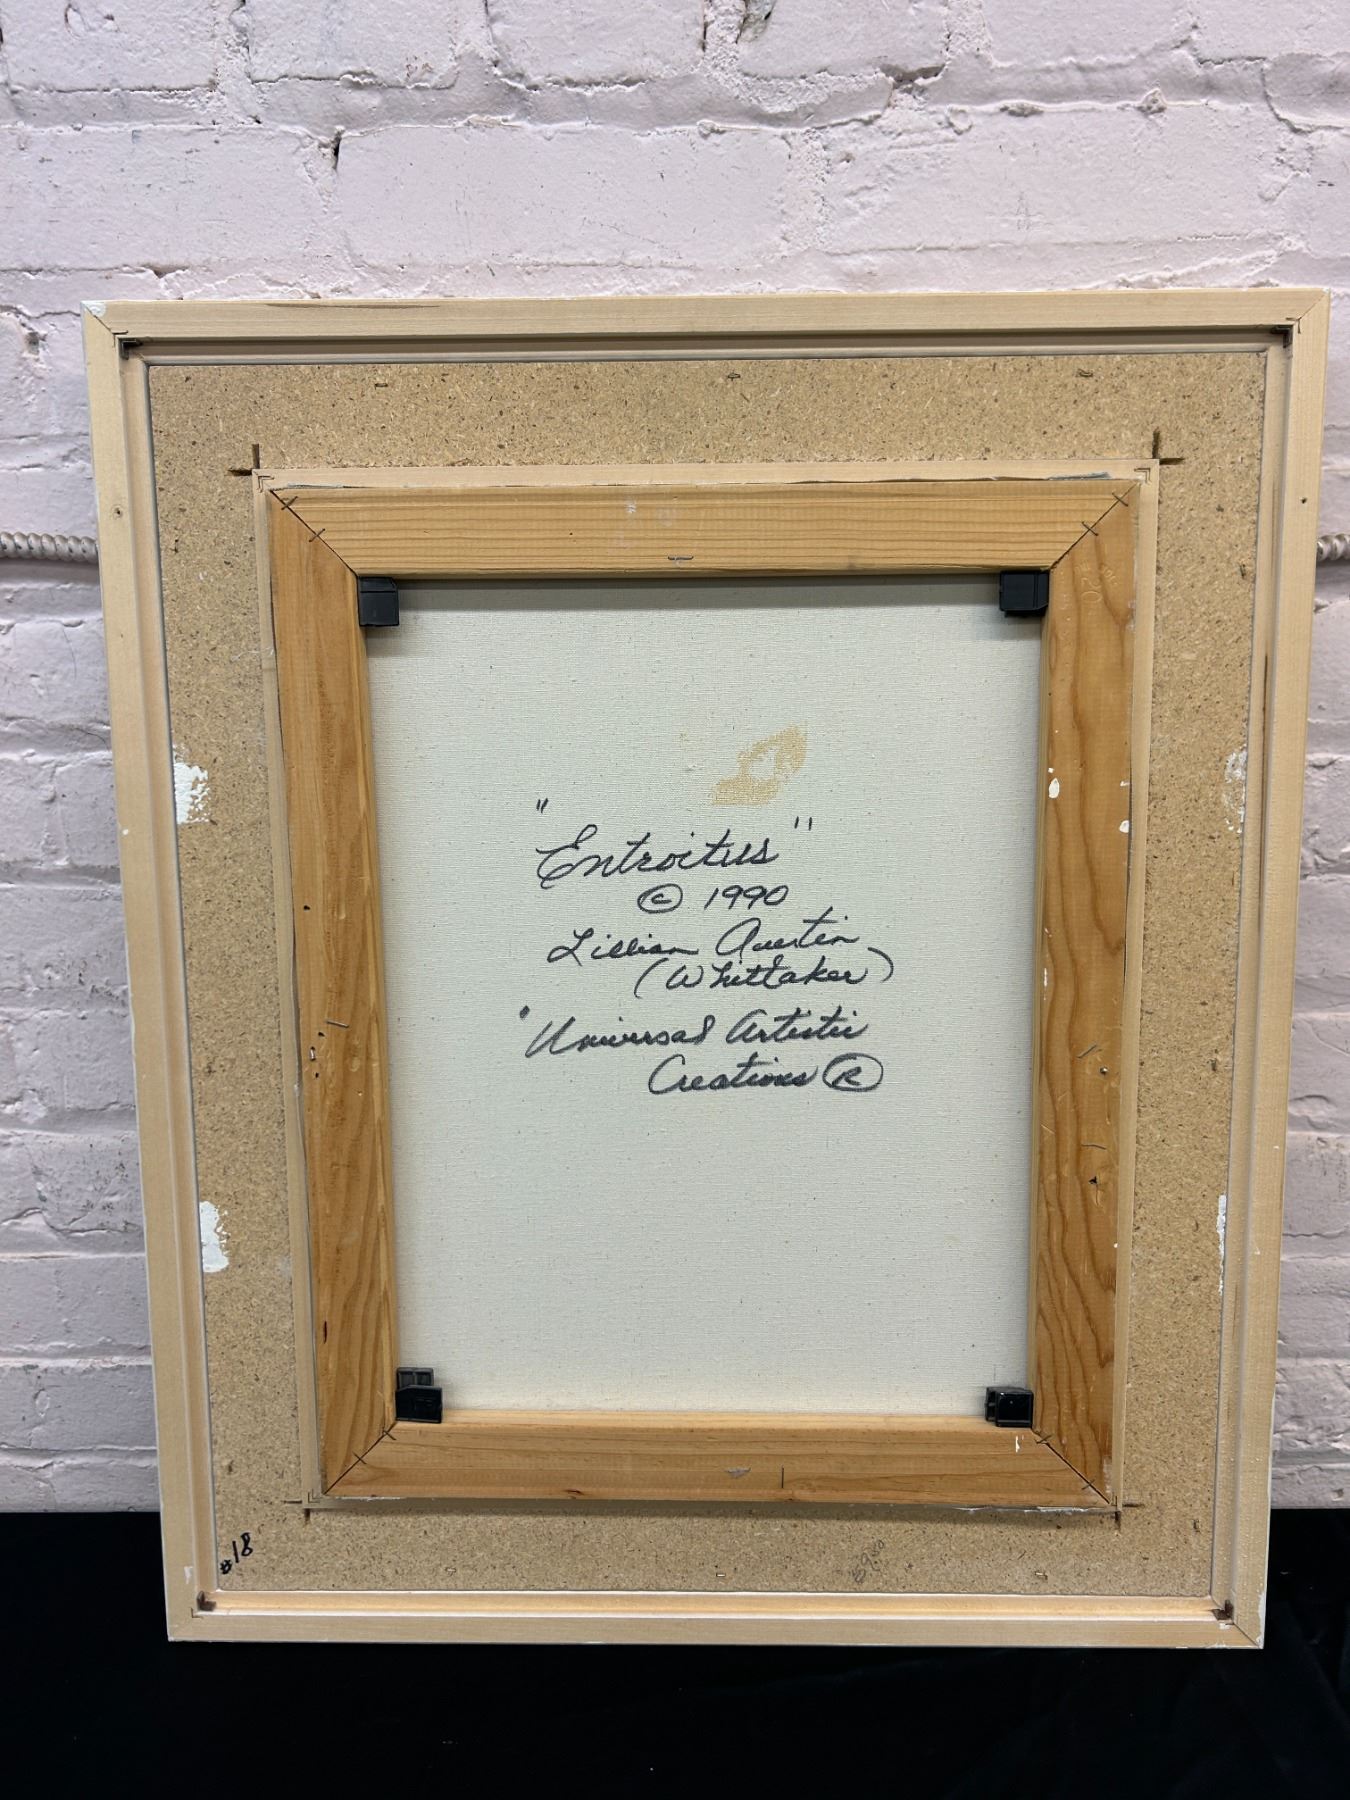 "Entroitus"
© 1990
Lillian Austin
(Whittaker)
"Universal Artistic
Creations ®
#18